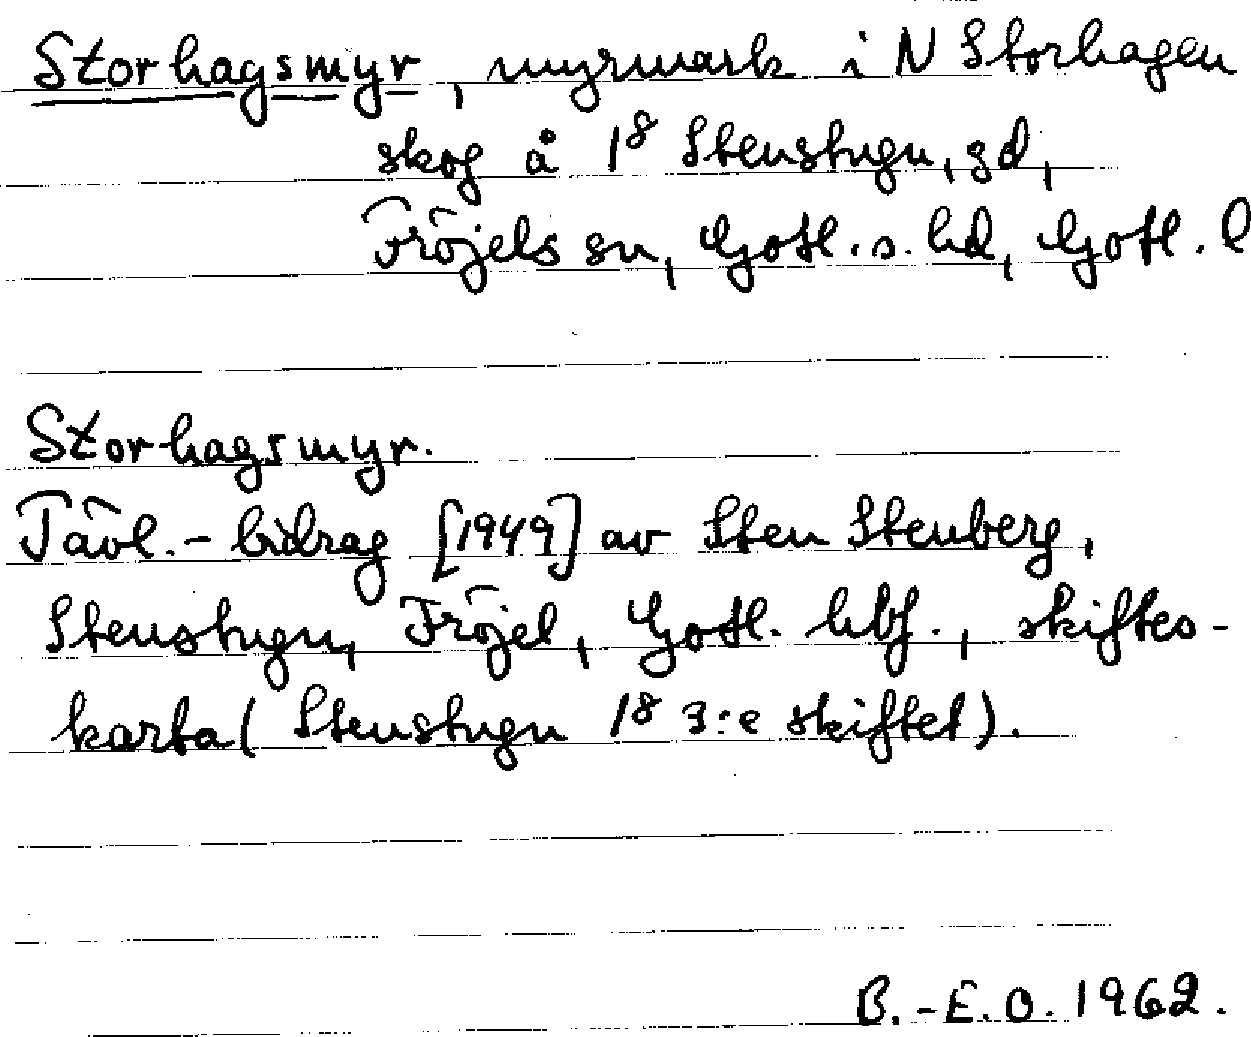 Storhagsmyr, myrmark i N Storhagen
skog å 1⁸ Stenstugu, gd,
Fröjels sn, Gotl. s. hd, Gotl. l
Storhagsmyr.
Tävl.-bidrag [1949] av Sten Stenberg,
Stenstugu, Fröjel, Gotl. hbf., skiftes-
karta (Stenstugu 1⁸ 3:e skiftet).
B.-E.O. 1962.